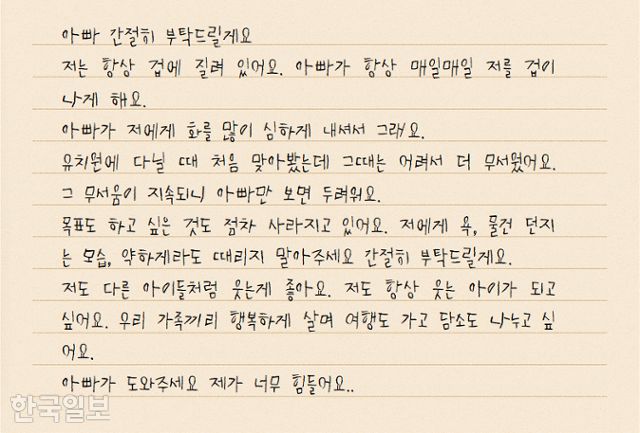 아빠 간절히 부탁드릴게요
저는 항상 겁에 질려 있어요. 아빠가 항상 매일매일 저를 겁이
나게 해요.
아빠가 저에게 화를 많이 심하게 내셔서 그래요.
유치원에 다닐 때 처음 맞아봤는데 그때는 어려서 더 무서웠어요.
그 무서움이 지속되니 아빠만 보면 두려워요.
목표도 하고 싶은 것도 점차 사라지고 있어요. 저에게 욕, 물건 던지
는 모습, 약하게라도 때리지 말아주세요 간절히 부탁드릴게요.
저도 다른 아이들처럼 웃는게 좋아요. 저도 항상 웃는 아이가 되고
싶어요. 우리 가족끼리 행복하게 살며 여행도 가고 담소도 나누고 싶
어요.
아빠가 도와주세요 제가 너무 힘들어요..
한국일보